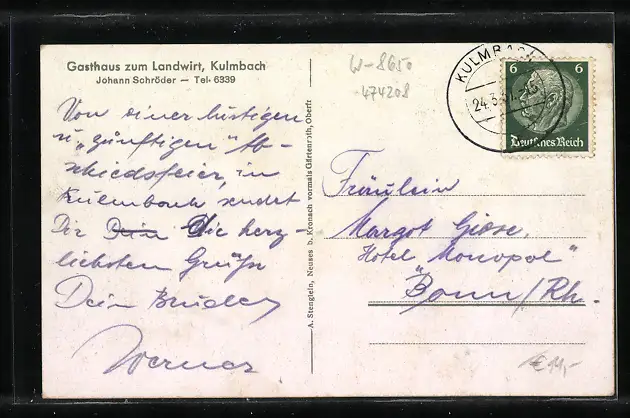 Gasthaus zum Landwirt, Kulmbach
Johann Schröder — Tel. 6339
Von einer lustigen
u. „zünftigen" Ab-
schiedsfeier in
Kulmbach sendet
Dir Dein Die herz-
lichsten Grüße
Dein Bruder
Werner
A. Stenglein, Neuses b. Kronach vormals Gärtenroth, Oberfr
W-8650
474208
KULMBACH
24.3.
6 6
Deutsches Reich
Fräulein
Margot Giese.
Hotel „Monopol"
Bonn/Rh.
€ 14,-